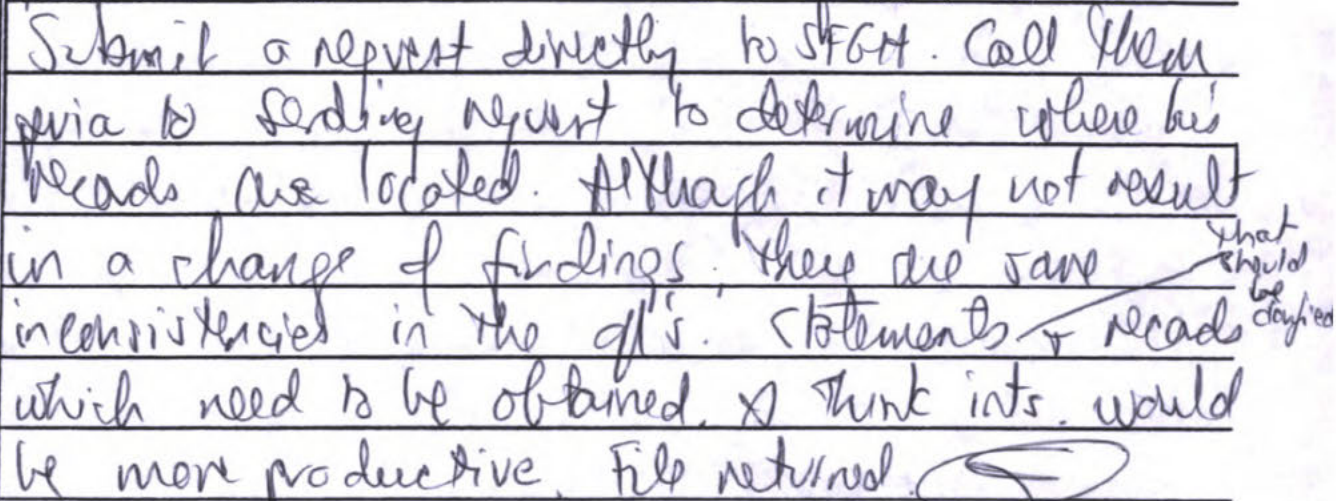 Submit a request directly to SFGH. Call them
prior to sending request to determine where his
records are located. Although it may not result
in a change of findings, there are some
inconsistencies in the statements & records
that should be clarified
which need to be obtained. I think ints. would
be more productive. File returned.